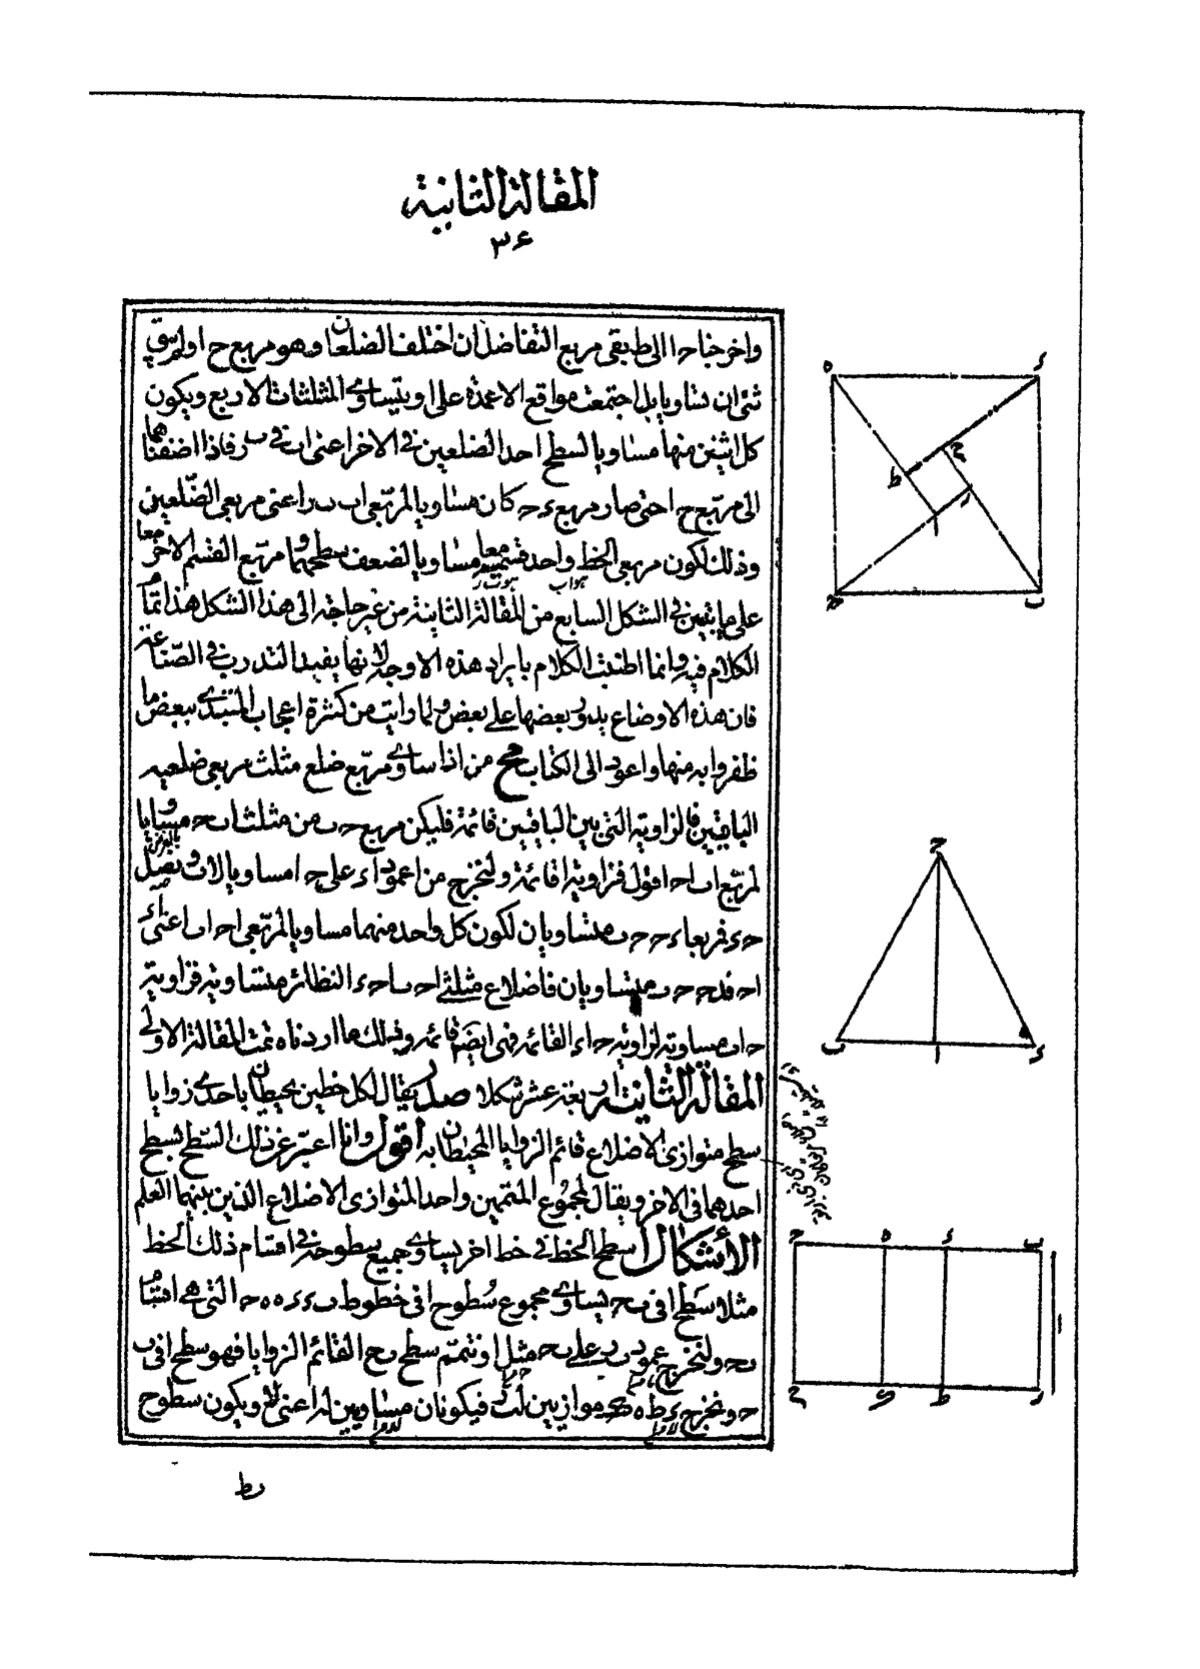 المقالة الثانية
٣۶
واخرجنا ح ا الى ط بقى مربع التفاضل ان اختلف الضلعان وهو مربع ح ا ولم يبق
شئ ان تساويا بل اجتمعت مواقع الاعمدة على ا ويتساوى المثلثات الاربع ويكون
كل اثنين منها مساويا لسطح احد الضلعين فى الاخر اعنى اب فى ب ر فاذا اضفناهما
الى مربع ح ا حتى صار مربع ء ح كان مساويا لمربعى اب ب ر اعنى مربعى الضلعين
وذلك لكون مربعى الخط واحد قسميه معا مساويا لضعف سطحهما ومربع القسم الاخر معا
على ما تبين فى الشكل السابع من المقالة الثانية من غير حاجة الى هذا الشكل هذا تمام
الكلام فيه وانما اطنبت الكلام بايراد هذه الاوجه لانها يفيد التدرب فى الصناعة
فان هذه الاوضاع يدور بعضها على بعض ولما رايت من كثرة اعجاب المبتدى ببعض ما
ظفروا به منها واعود الى الكتاب مح من اذا ساوى مربع ضلع مثلث مربعى ضلعيه
الباقيين فالزاوية التى بين الباقيين قائمة فليكن مربع ح ب من مثلث اب ح مساويا
لمربع اب اح اقول فزاوية ا قائمة ولنخرج من ا عمود اء على ح ا مساويا لاب ونصل
ح ء فمربعا ء ح ح ب متساويان لكون كل واحد منهما مساويا لمربعى اح اب اعنى اء
اح فء ح ح ب متساويان فاضلاع مثلثى اح ب اح ء النظائر متساوية فزاوية
ح اب مساوية لزاوية ح اء القائمة فهى ايضا قائمة وذلك ما اردناه تمت المقالة الاولى
المقالة الثانية اربعة عشر شكلا صدر يقال لكل خطين يحيطان باحدى زوايا
سطح متوازى الاضلاع قائم الزوايا المحيطان به اقول وانا اعبر عن ذلك السطح بسطح
احدهما فى الاخر ويقال لمجموع المتممين واحد المتوازى الاضلاع الذين بينهما العلم
الأشكال ا سطح الخط فى خط اخر يساوى جميع سطوحه فى اقسام ذلك الخط
مثلا سطح ا فى ب ح يساوى مجموع سطوح ا فى خطوط ب ء ء ه ه ح التى هى اقسام
ب ح ولنخرج عمود ب ر على ب ح مثل ا ونتمم سطح ب ح القائم الزوايا فهو سطح ا فى ب
ح ونخرج ء ط ه ى موازيين لب ر فيكونان مساويين له اعنى لا ويكون سطوح
ه
ء
ح
ط
ر
ا
ح
ب
ح
ب
ا
ء
ح
ه
ء
ب
ا
ح
ى
ط
ر
بط